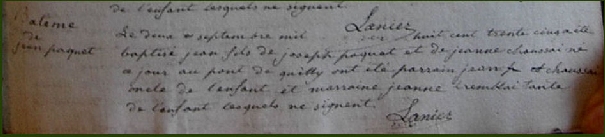 de l'enfant lesquels ne signent
Lanier
Batême
de
jean paquet
Le deux septembre mil huit cent trente cinq a été
baptisé jean fils de joseph paquet et de jeanne chaussai né
ce jour au pont de quilly ont été parrain jean chaussai
oncle de l'enfant et marraine jeanne tremblai tante
de l'enfant lesquels ne signent
Lanier